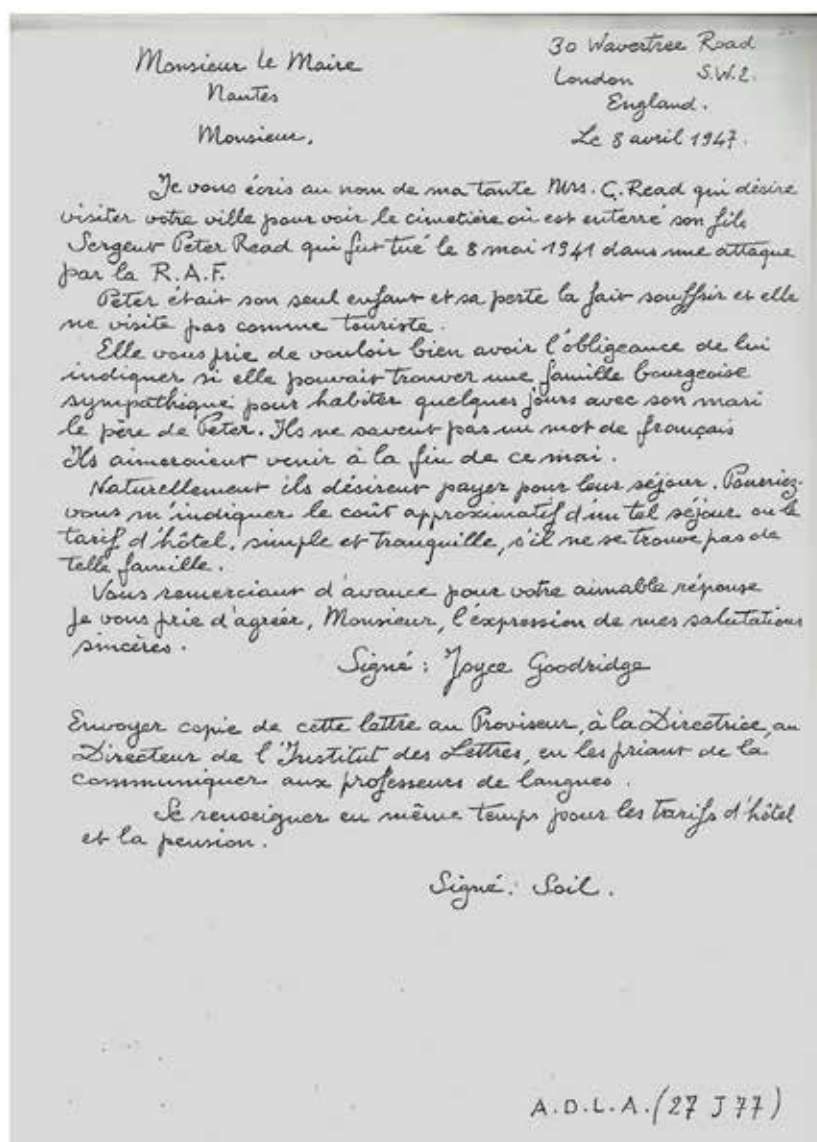 Monsieur le Maire
Nantes
Monsieur,
30 Wavertree Road
London S.W.2.
England.
Le 8 avril 1947.
Je vous écris au nom de ma tante Mrs. C. Read qui désire
visiter votre ville pour voir le cimetière où est enterré son fils
Sergent Peter Read qui fut tué le 8 mai 1941 dans une attaque
par la R.A.F.
Peter était son seul enfant et sa perte la fait souffrir et elle
ne visite pas comme touriste.
Elle vous prie de vouloir bien avoir l'obligeance de lui
indiquer si elle pouvait trouver une famille bourgeoise
sympathique pour habiter quelques jours avec son mari
le père de Peter. Ils ne savent pas un mot de français
Ils aimeraient venir à la fin de ce mai.
Naturellement ils désirent payer pour leur séjour. Pourriez-
vous m'indiquer le coût approximatif d'un tel séjour ou le
tarif d'hôtel, simple et tranquille, s'il ne se trouve pas de
telle famille.
Vous remerciant d'avance pour votre aimable réponse
Je vous prie d'agréer, Monsieur, l'expression de mes salutations
sincères.
Signé : Joyce Goodridge
Envoyer copie de cette lettre au Proviseur, à la Directrice, au
Directeur de l'Institut des Lettres, en les priant de la
communiquer aux professeurs de langues.
Se renseigner en même temps pour les tarifs d'hôtel
et la pension.
Signé : Soil.
A.D.L.A. (27 J 77)